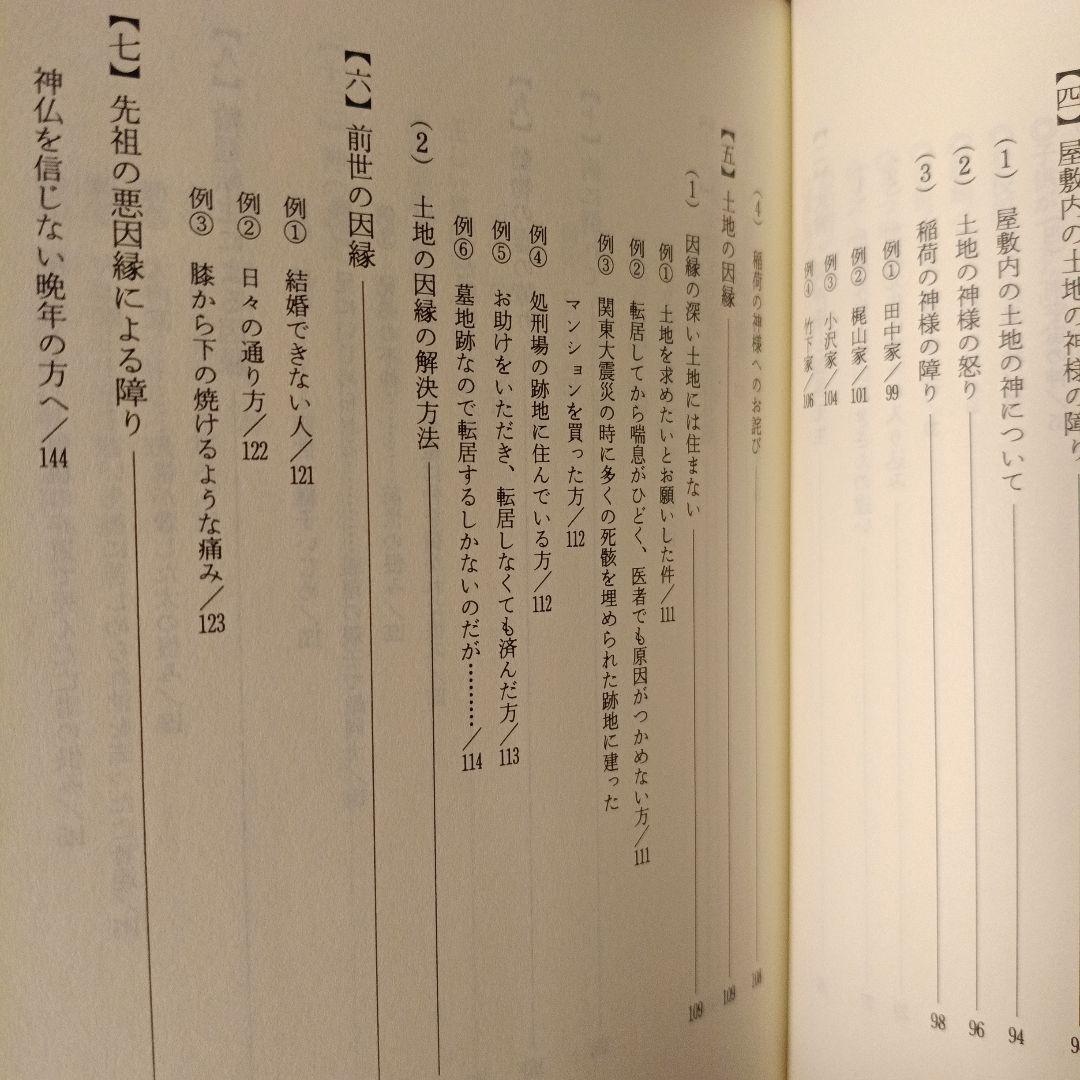 【四】屋敷内の土地の神様の障り
(1) 屋敷内の土地の神について 94
(2) 土地の神様の怒り 96
(3) 稲荷の神様の障り 98
例① 田中家／99
例② 梶山家／101
例③ 小沢家／104
例④ 竹下家／106
(4) 稲荷の神様へのお詫び 108
【五】土地の因縁 109
(1) 因縁の深い土地には住まない 109
例① 土地を求めたいとお願いした件／111
例② 転居してから喘息がひどく、医者でも原因がつかめない方／111
例③ 関東大震災の時に多くの死骸を埋められた跡地に建った
マンションを買った方／112
例④ 処刑場の跡地に住んでいる方／112
例⑤ お助けをいただき、転居しなくても済んだ方／113
例⑥ 墓地跡なので転居するしかないのだが………／114
(2) 土地の因縁の解決方法
【六】前世の因縁
例① 結婚できない人／121
例② 日々の通り方／122
例③ 膝から下の焼けるような痛み／123
【七】先祖の悪因縁による障り
神仏を信じない晩年の方へ／144